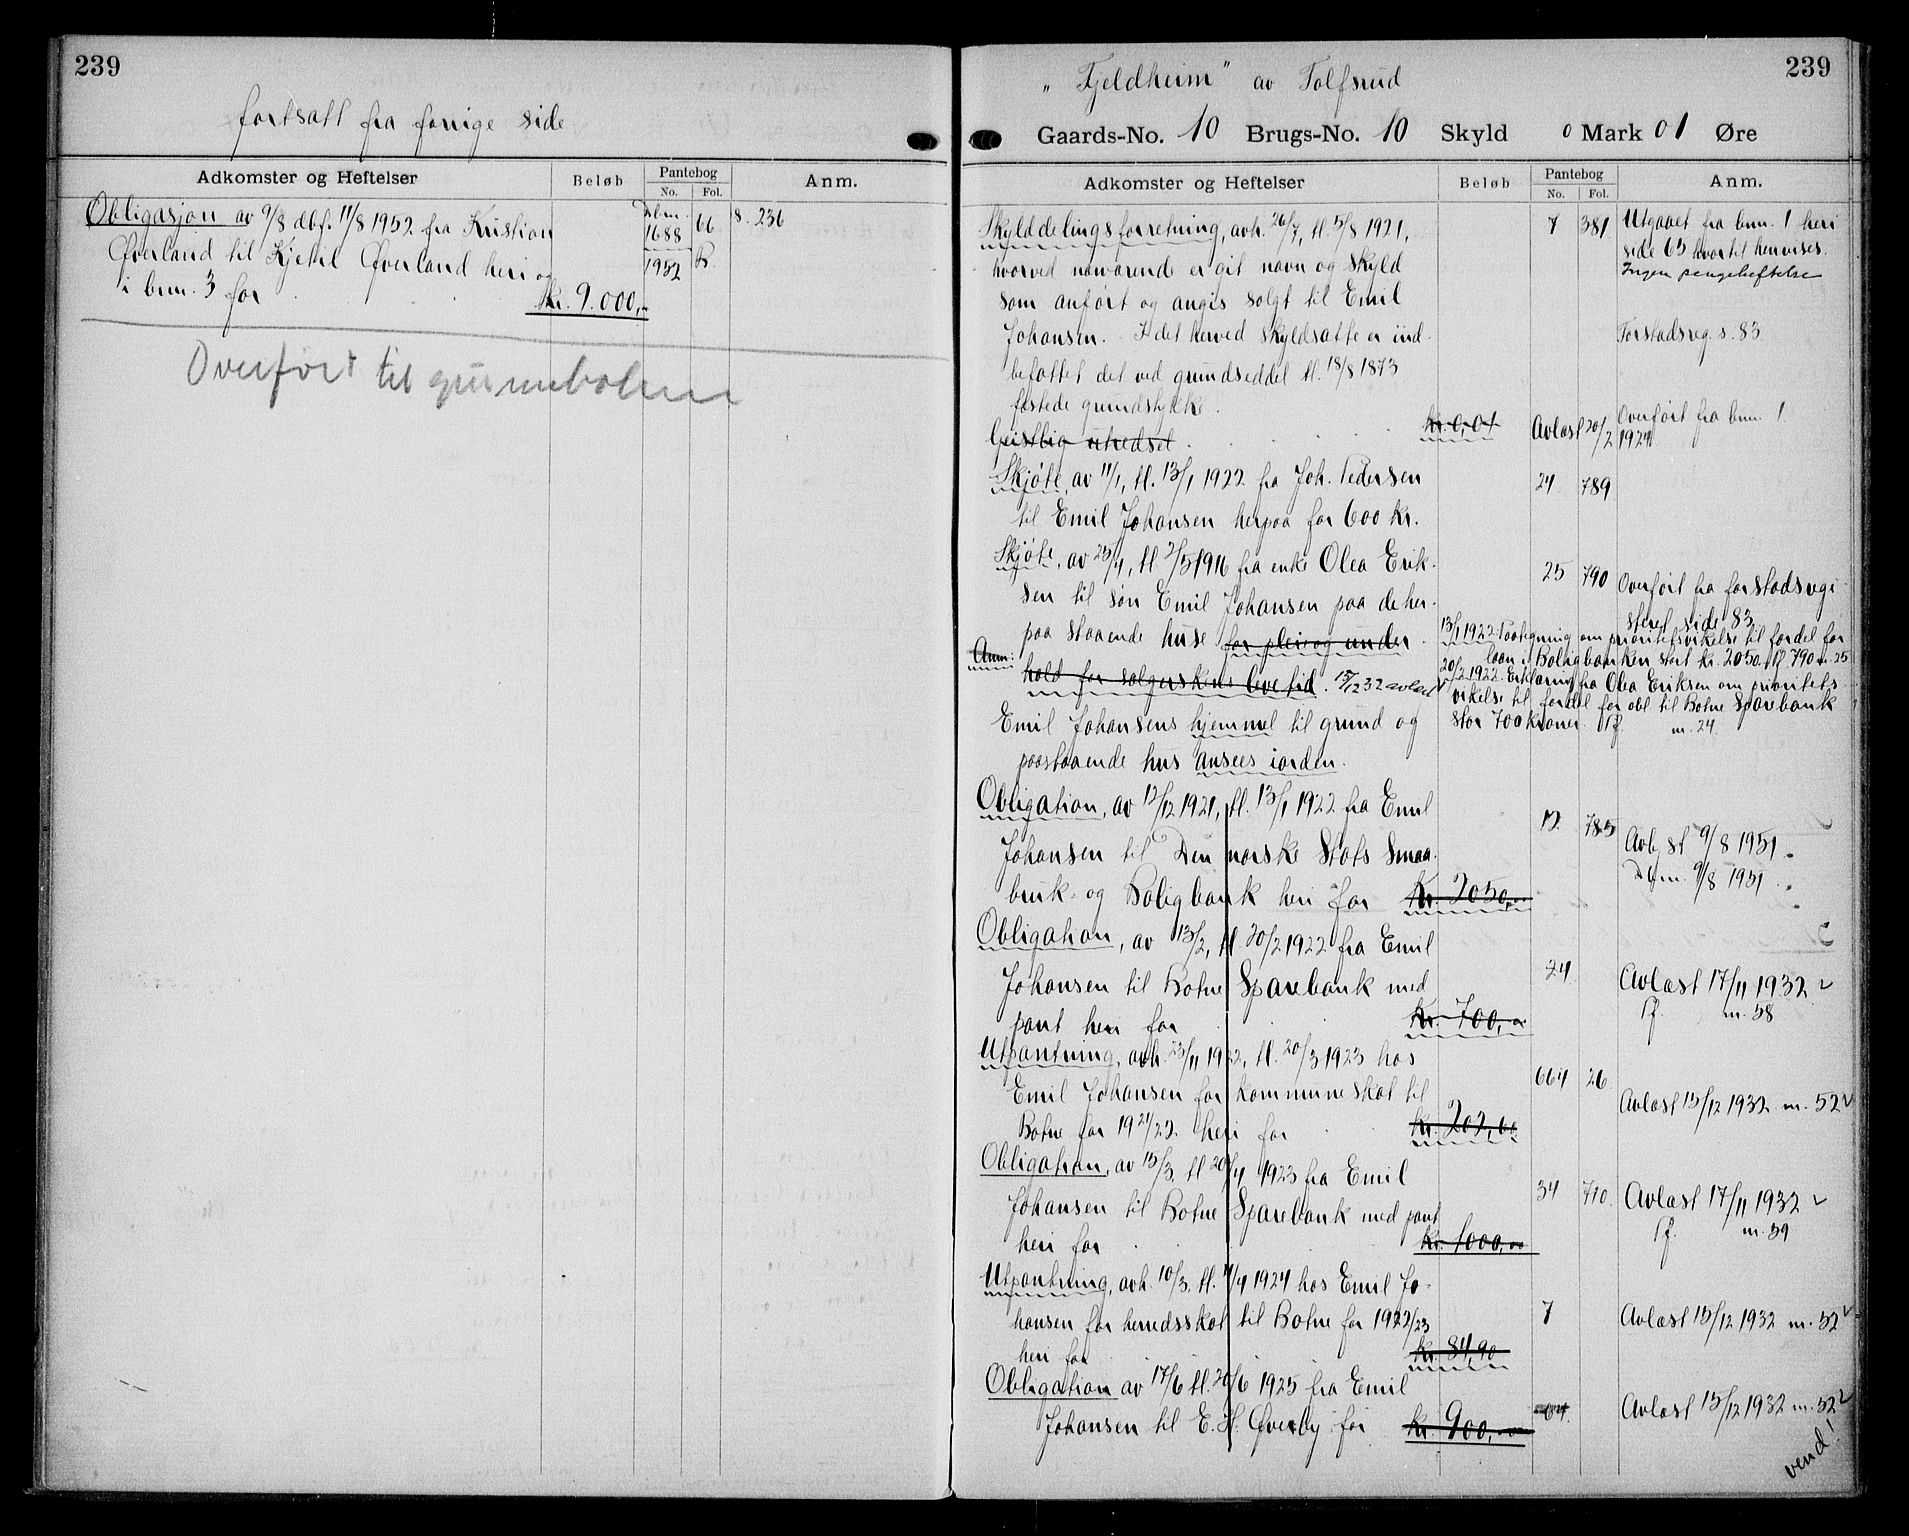 239
fortsatt fra forrige side
Adkomster og Heftelser
Beløb
Pantebog
No. Fol.
Anm.
Obligasjon av 9/8 dbf. 11/8 1952 fra Kristian
Øverland til Kjetil Øverland heri og
i bnr. 3 for
kr. 9.000,-
Dbnr.
1688
1952
66
B.
8. 236
Overført til grunnboken
239
"Fjeldheim" av Tolfsrud
Gaards-No. 10 Brugs-No. 10 Skyld 0 Mark 01 Øre
Adkomster og Heftelser
Beløb
Pantebog
No. Fol.
Anm.
Skylddelingsforretning, avh. 26/7, tl. 5/8 1921,
hvorved nærværende er git navn og skyld
som anført og angis solgt til Emil
Johansen. - I det herved skyldsatte er ind-
befattet det ved grundseddel tl. 18/8 1873
fæstede grundstykke.
7 381
Utgaaet fra bnr. 1 heri
side 63 hvortil henvises.
Ingen pengeheftelse
Forstadsreg. s. 83
Geistlig utredsel kr. 0,01
Avlæst 20/2 1924
Overført fra bnr. 1
Skjøte, av 11/1, tl. 13/1 1922 fra Joh. Pedersen
til Emil Johansen herpaa for 600 kr.
24 789
Skjøte, av 25/4, tl 2/5 1916 fra enke Olea Erik-
sen til søn Emil Johansen paa de her-
paa staaende huse for pleie og under-
Anm:
hold for sælgerskens levetid. 15/12 32 avlæst
25 790
Overført fra forstadsregi-
steret side 83
13/1 1922. Paategning om prioritetsvikelse til fordel for
laan i Boligbanken stort kr. 2050. Pf. 790 m. 25
20/2 1922. Erklæring fra Olea Eriksen om prioritets
vikelse til fordel for obl. til Botne Sparebank
stor 700 kroner. Pf. m. 24.
Emil Johansens hjemmel til grund og
paastaaende hus ansees iorden.
Obligation, av 12/12 1921, tl. 13/1 1922 fra Emil
Johansen til Den norske Stats Smaa-
bruk- og Boligbank heri for kr. 2050,-
12 785
Avlyst 9/8 1951.
Dbnr. 9/8 1951.
Obligation, av 13/2, tl 20/2 1922 fra Emil
Johansen til Botne Sparebank med
pant heri for kr. 700,-
24
Avlæst 17/11 1932
Pf. m. 58
Utpantning, avh. 23/11 1922, tl. 20/3 1923 hos
Emil Johansen for kommuneskat til
Botne for 1921/22 heri for kr. 202,00
664 26
Avlæst 15/12 1932 m. 52
Obligation, av 15/3, tl 20/4 1923 fra Emil
Johansen til Botne Sparebank med pant
heri for kr. 1000,-
34 710
Avlæst 17/11 1932
Pf. m. 59
Utpantning, avh. 10/3, tl. 11/4 1924 hos Emil Jo-
hansen for herredsskat til Botne for 1922/23
heri for kr. 84,90
7
Avlæst 15/12 1932 m. 52
Obligation av 17/6 tl. 20/6 1925 fra Emil
Johansen til E. H. Øverby for kr. 900,-
64.
Avlæst 15/12 1932 m. 52
vend!